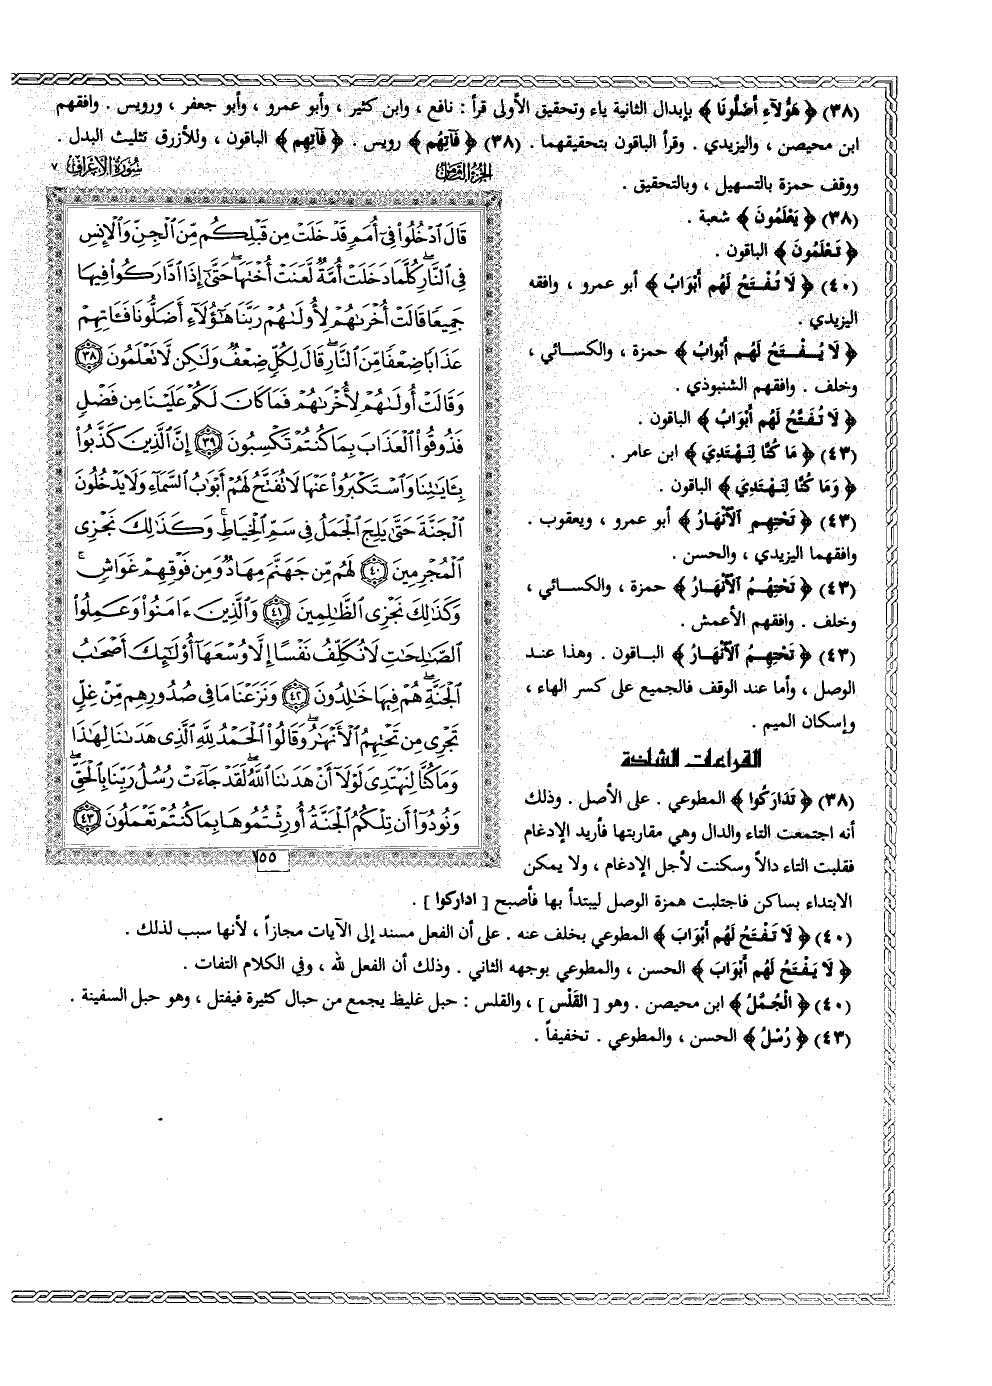 (٣٨) ﴿ هَؤُلَاءِ أَضَلُّونَا ﴾ بإبدال الثانية ياء وتحقيق الأولى قرأ : نافع ، وابن كثير ، وأبو عمرو ، وأبو جعفر ، ورويس . وافقهم
ابن محيصن ، واليزيدي . وقرأ الباقون بتحقيقهما . (٣٨) ﴿ فَآتِهُم ﴾ رويس . ﴿ فَآتِهِم ﴾ الباقون ، وللأزرق تثليث البدل .
ووقف حمزة بالتسهيل ، وبالتحقيق .
(٣٨) ﴿ يَعْلَمُونَ ﴾ شعبة .
﴿ تَعْلَمُونَ ﴾ الباقون .
(٤٠) ﴿ لَا تُفْتَحُ لَهُم أَبْوَابُ ﴾ أبو عمرو ، وافقه
اليزيدي .
﴿ لَا يُفْتَحُ لَهُم أَبْوابُ ﴾ حمزة ، والكسائي ،
وخلف . وافقهم الشنبوذي .
﴿ لَا تُفَتَّحُ لَهُم أَبْوَابُ ﴾ الباقون .
(٤٣) ﴿ مَا كُنَّا لِنَهْتَدِيَ ﴾ ابن عامر .
﴿ وَمَا كُنَّا لِنَهْتَدِيَ ﴾ الباقون .
(٤٣) ﴿ تَحْتِهِمِ الْأَنْهَارُ ﴾ أبو عمرو ، ويعقوب .
وافقهما اليزيدي ، والحسن .
(٤٣) ﴿ تَحْتِهُمُ الْأَنْهَارُ ﴾ حمزة ، والكسائي ،
وخلف . وافقهم الأعمش .
(٤٣) ﴿ تَحْتِهِمُ الْأَنْهَارُ ﴾ الباقون . وهذا عند
الوصل ، وأما عند الوقف فالجميع على كسر الهاء ،
وإسكان الميم .
القراءات الشاذة
(٣٨) ﴿ تَدَارَكُوا ﴾ المطوعي . على الأصل . وذلك
أنه اجتمعت التاء والدال وهي مقاربتها فأريد الإدغام
فقلبت التاء دالاً وسكنت لأجل الإدغام ، ولا يمكن
الابتداء بساكن فاجتلبت همزة الوصل ليبتدأ بها فأصبح [ اداركوا ] .
(٤٠) ﴿ لَا تَفْتَحُ لَهُم أَبْوَابَ ﴾ المطوعي بخلف عنه . على أن الفعل مسند إلى الآيات مجازاً ، لأنها سبب لذلك .
﴿ لَا يَفْتَحُ لَهُم أَبْوَابَ ﴾ الحسن ، والمطوعي بوجهه الثاني . وذلك أن الفعل لله ، وفي الكلام التفات .
(٤٠) ﴿ الْجُمَّلُ ﴾ ابن محيصن . وهو [ القَلْس ] ، والقلس : حبل غليظ يجمع من حبال كثيرة فيفتل ، وهو حبل السفينة .
(٤٣) ﴿ رُسْلُ ﴾ الحسن ، والمطوعي . تخفيفاً .
الجزء الثامن
سورة الأعراف ٧
قَالَ ٱدْخُلُوا۟ فِىٓ أُمَمٍ قَدْ خَلَتْ مِن قَبْلِكُم مِّنَ ٱلْجِنِّ وَٱلْإِنسِ
فِى ٱلنَّارِ كُلَّمَا دَخَلَتْ أُمَّةٌ لَّعَنَتْ أُخْتَهَا حَتَّىٰٓ إِذَا ٱدَّارَكُوا۟ فِيهَا
جَمِيعًا قَالَتْ أُخْرَىٰهُمْ لِأُولَىٰهُمْ رَبَّنَا هَٰٓؤُلَآءِ أَضَلُّونَا فَـَٔاتِهِمْ
عَذَابًا ضِعْفًا مِّنَ ٱلنَّارِ قَالَ لِكُلٍّ ضِعْفٌ وَلَٰكِن لَّا تَعْلَمُونَ ٣٨
وَقَالَتْ أُولَىٰهُمْ لِأُخْرَىٰهُمْ فَمَا كَانَ لَكُمْ عَلَيْنَا مِن فَضْلٍ
فَذُوقُوا۟ ٱلْعَذَابَ بِمَا كُنتُمْ تَكْسِبُونَ ٣٩ إِنَّ ٱلَّذِينَ كَذَّبُوا۟
بِـَٔايَٰتِنَا وَٱسْتَكْبَرُوا۟ عَنْهَا لَا تُفَتَّحُ لَهُمْ أَبْوَٰبُ ٱلسَّمَآءِ وَلَا يَدْخُلُونَ
ٱلْجَنَّةَ حَتَّىٰ يَلِجَ ٱلْجَمَلُ فِى سَمِّ ٱلْخِيَاطِ وَكَذَٰلِكَ نَجْزِى
ٱلْمُجْرِمِينَ ٤٠ لَهُم مِّن جَهَنَّمَ مِهَادٌ وَمِن فَوْقِهِمْ غَوَاشٍ
وَكَذَٰلِكَ نَجْزِى ٱلظَّٰلِمِينَ ٤١ وَٱلَّذِينَ ءَامَنُوا۟ وَعَمِلُوا۟
ٱلصَّٰلِحَٰتِ لَا نُكَلِّفُ نَفْسًا إِلَّا وُسْعَهَآ أُو۟لَٰٓئِكَ أَصْحَٰبُ
ٱلْجَنَّةِ هُمْ فِيهَا خَٰلِدُونَ ٤٢ وَنَزَعْنَا مَا فِى صُدُورِهِم مِّنْ غِلٍّ
تَجْرِى مِن تَحْتِهِمُ ٱلْأَنْهَٰرُ وَقَالُوا۟ ٱلْحَمْدُ لِلَّهِ ٱلَّذِى هَدَىٰنَا لِهَٰذَا
وَمَا كُنَّا لِنَهْتَدِىَ لَوْلَآ أَنْ هَدَىٰنَا ٱللَّهُ لَقَدْ جَآءَتْ رُسُلُ رَبِّنَا بِٱلْحَقِّ
وَنُودُوٓا۟ أَن تِلْكُمُ ٱلْجَنَّةُ أُورِثْتُمُوهَا بِمَا كُنتُمْ تَعْمَلُونَ ٤٣
١٥٥